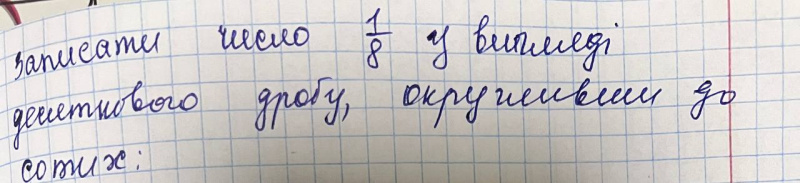 записати число 1/8 у вигляді
десяткового дробу, округливши до
сотих: